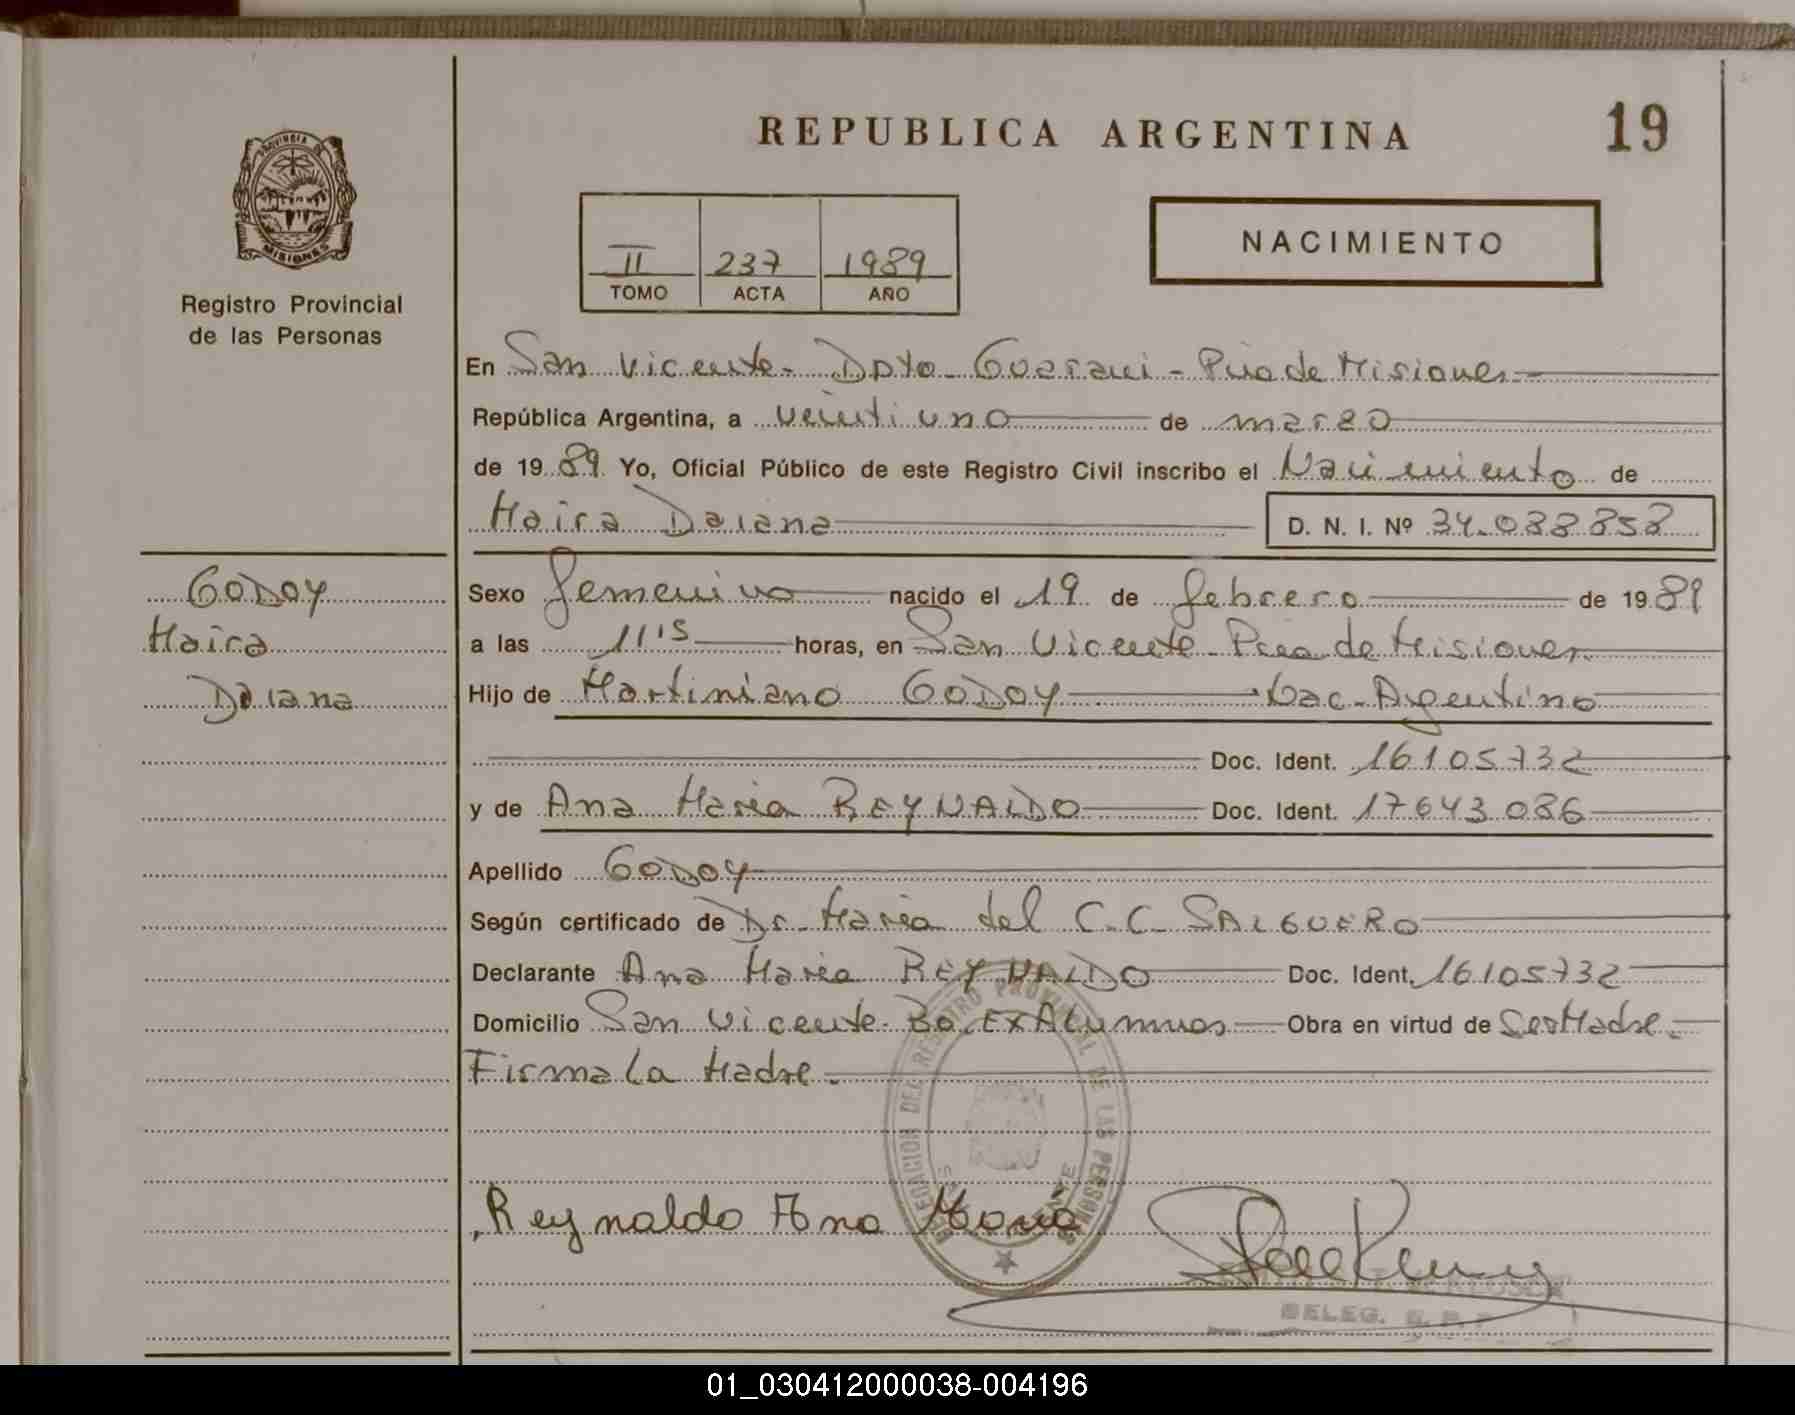 REPUBLICA ARGENTINA
19
PROVINCIA DE
MISIONES
Registro Provincial
de las Personas
II 237 1989
TOMO ACTA AÑO
NACIMIENTO
En San Vicente - Dpto - Guarani - Pcia de Misiones
República Argentina, a veinti uno de marzo
de 1989 Yo, Oficial Público de este Registro Civil inscribo el Nacimiento de
Maira Daiana
D. N. I. Nº 34.088858
GODOY
Maira
Daiana
Sexo femenino nacido el 19 de febrero de 1989
a las 11'15 horas, en San Vicente - Pcia de Misiones
Hijo de Martiniano GODOY Nac - Argentino
Doc. Ident. 16105732
y de Ana Maria REYNALDO Doc. Ident. 17643086
Apellido GODOY
Según certificado de Dr. Maria del C. C. SALGUERO
Declarante Ana Maria REYNALDO Doc. Ident. 16105732
Domicilio San Vicente - Bo. Ex Alumnos Obra en virtud de Ser Madre.
Firma La Madre.
DELEGACION DEL REGISTRO PROVINCIAL DE LAS PERSONAS
Reynaldo Ana Maria
DELEG.
01_030412000038-004196